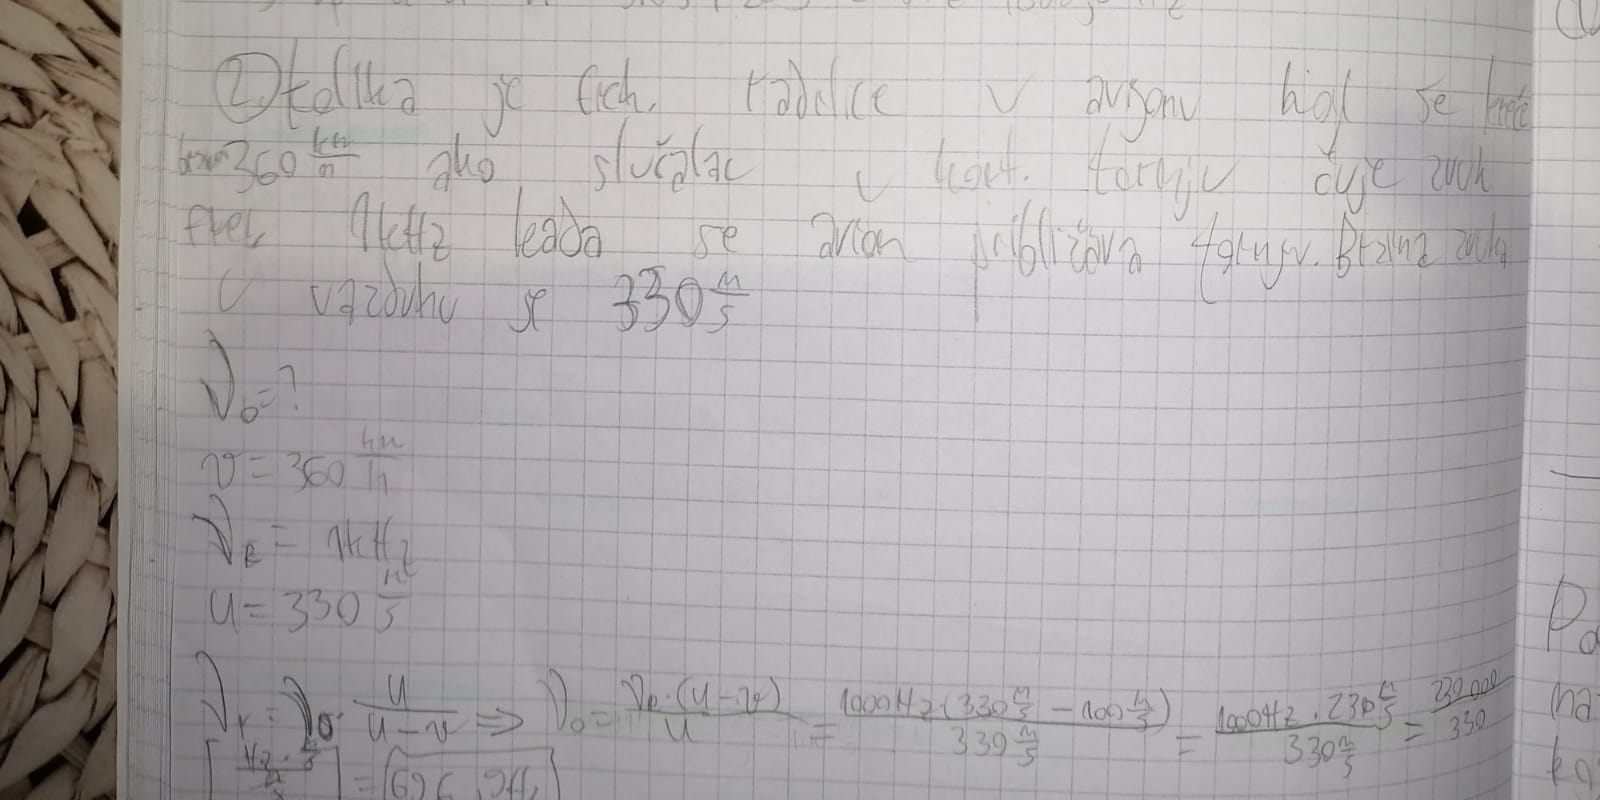 ② kolika je frek. radilice v avionu koji se kreće
brzinom 360 km/h ako slušalac u kont. tornju čuje zvuk
frek. 1kHz kada se avion približava tornju. Brzina zvuka
u vazduhu je 330 m/s
ν₀=?
v=360 km/h
νᵣ= 1kHz
u=330 m/s
νᵣ=ν₀· u/(u-v) ⇒ ν₀= νᵣ·(u-v)/u = 1000Hz·(330 m/s - 100 m/s)/330 m/s = 1000Hz·230 m/s/330 m/s = 230 000/330
= 696,9Hz